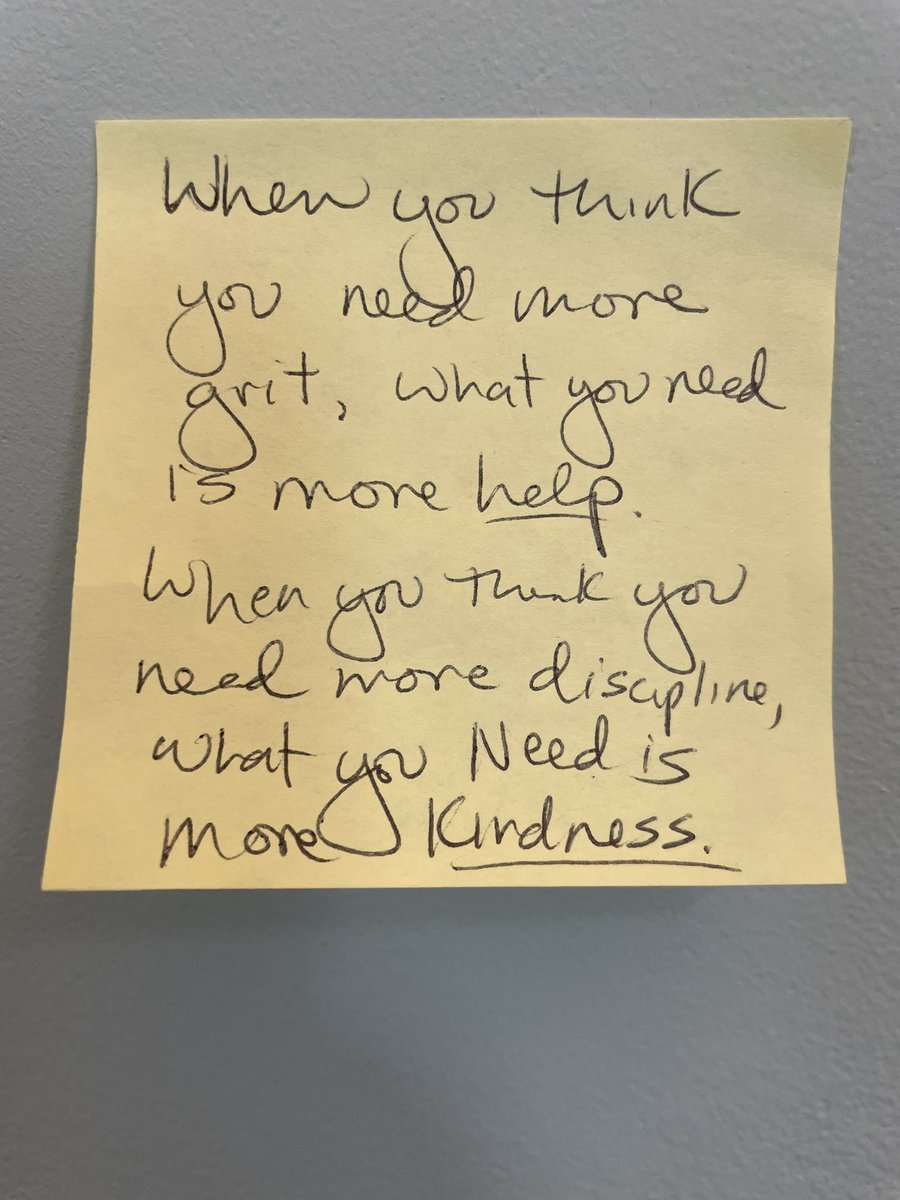 When you think
you need more
grit, what you need
is more help.
When you think you
need more discipline,
what you Need is
more Kindness.